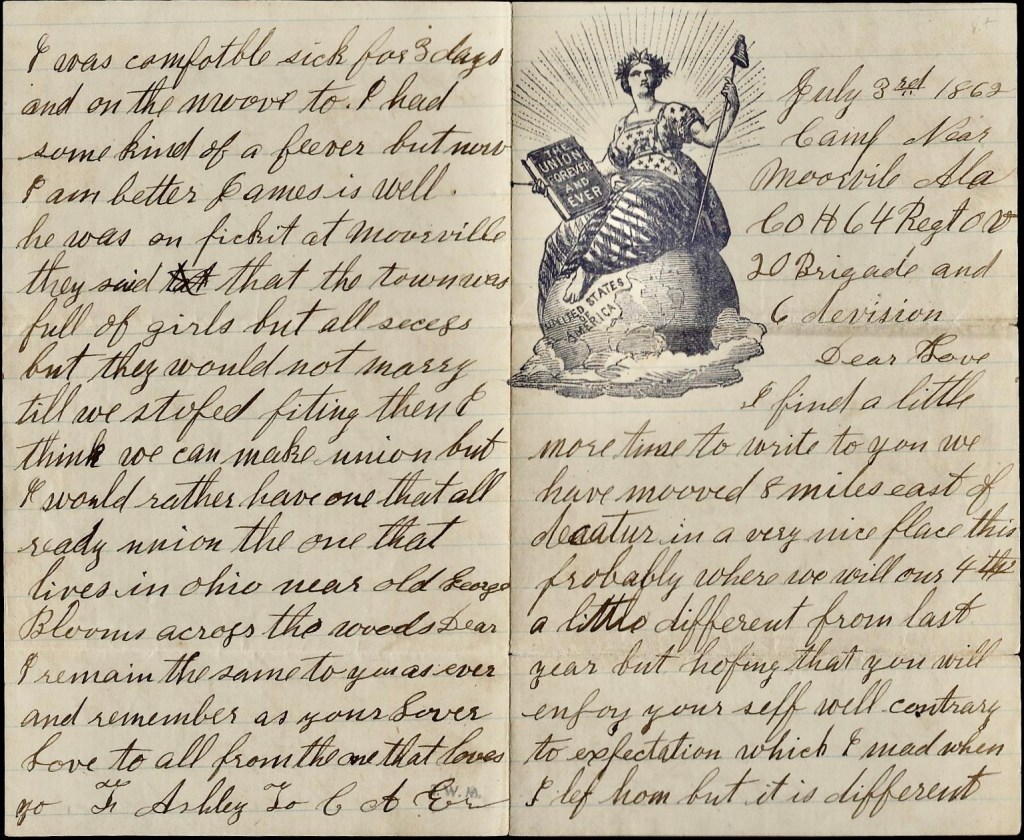 THE
UNION
FOREVER
AND
EVER
UNITED STATES
OF
AMERICA
July 3rd 1862
Camp Near
Moorvile Ala
CO H 64 Regt O V
20 Brigade and
6 devision
Dear Love
I find a little
more time to write to you we
have mooved 8 miles east of
decatur in a very nice place this
probably where we will our 4 th
a little different from last
year but hoping that you will
enjoy your self well contrary
to expectation which I mad when
I lef hom but it is different
I was comfotble sick for 3 days
and on the moove to. I had
some kind of a feever but now
I am better James is well.
he was on pickit at moorville
they said that the town was
full of girls but all secess
but they would not marry
till we stoped fiting then I
think we can make union but
I would rather have one that all
ready union the one that
lives in ohio near old George
Blooms across the woods Dear
I remain the same to you as ever
and remember as your Lover
Love to all from the one that loves
yo F Ashley To C A
W. M.